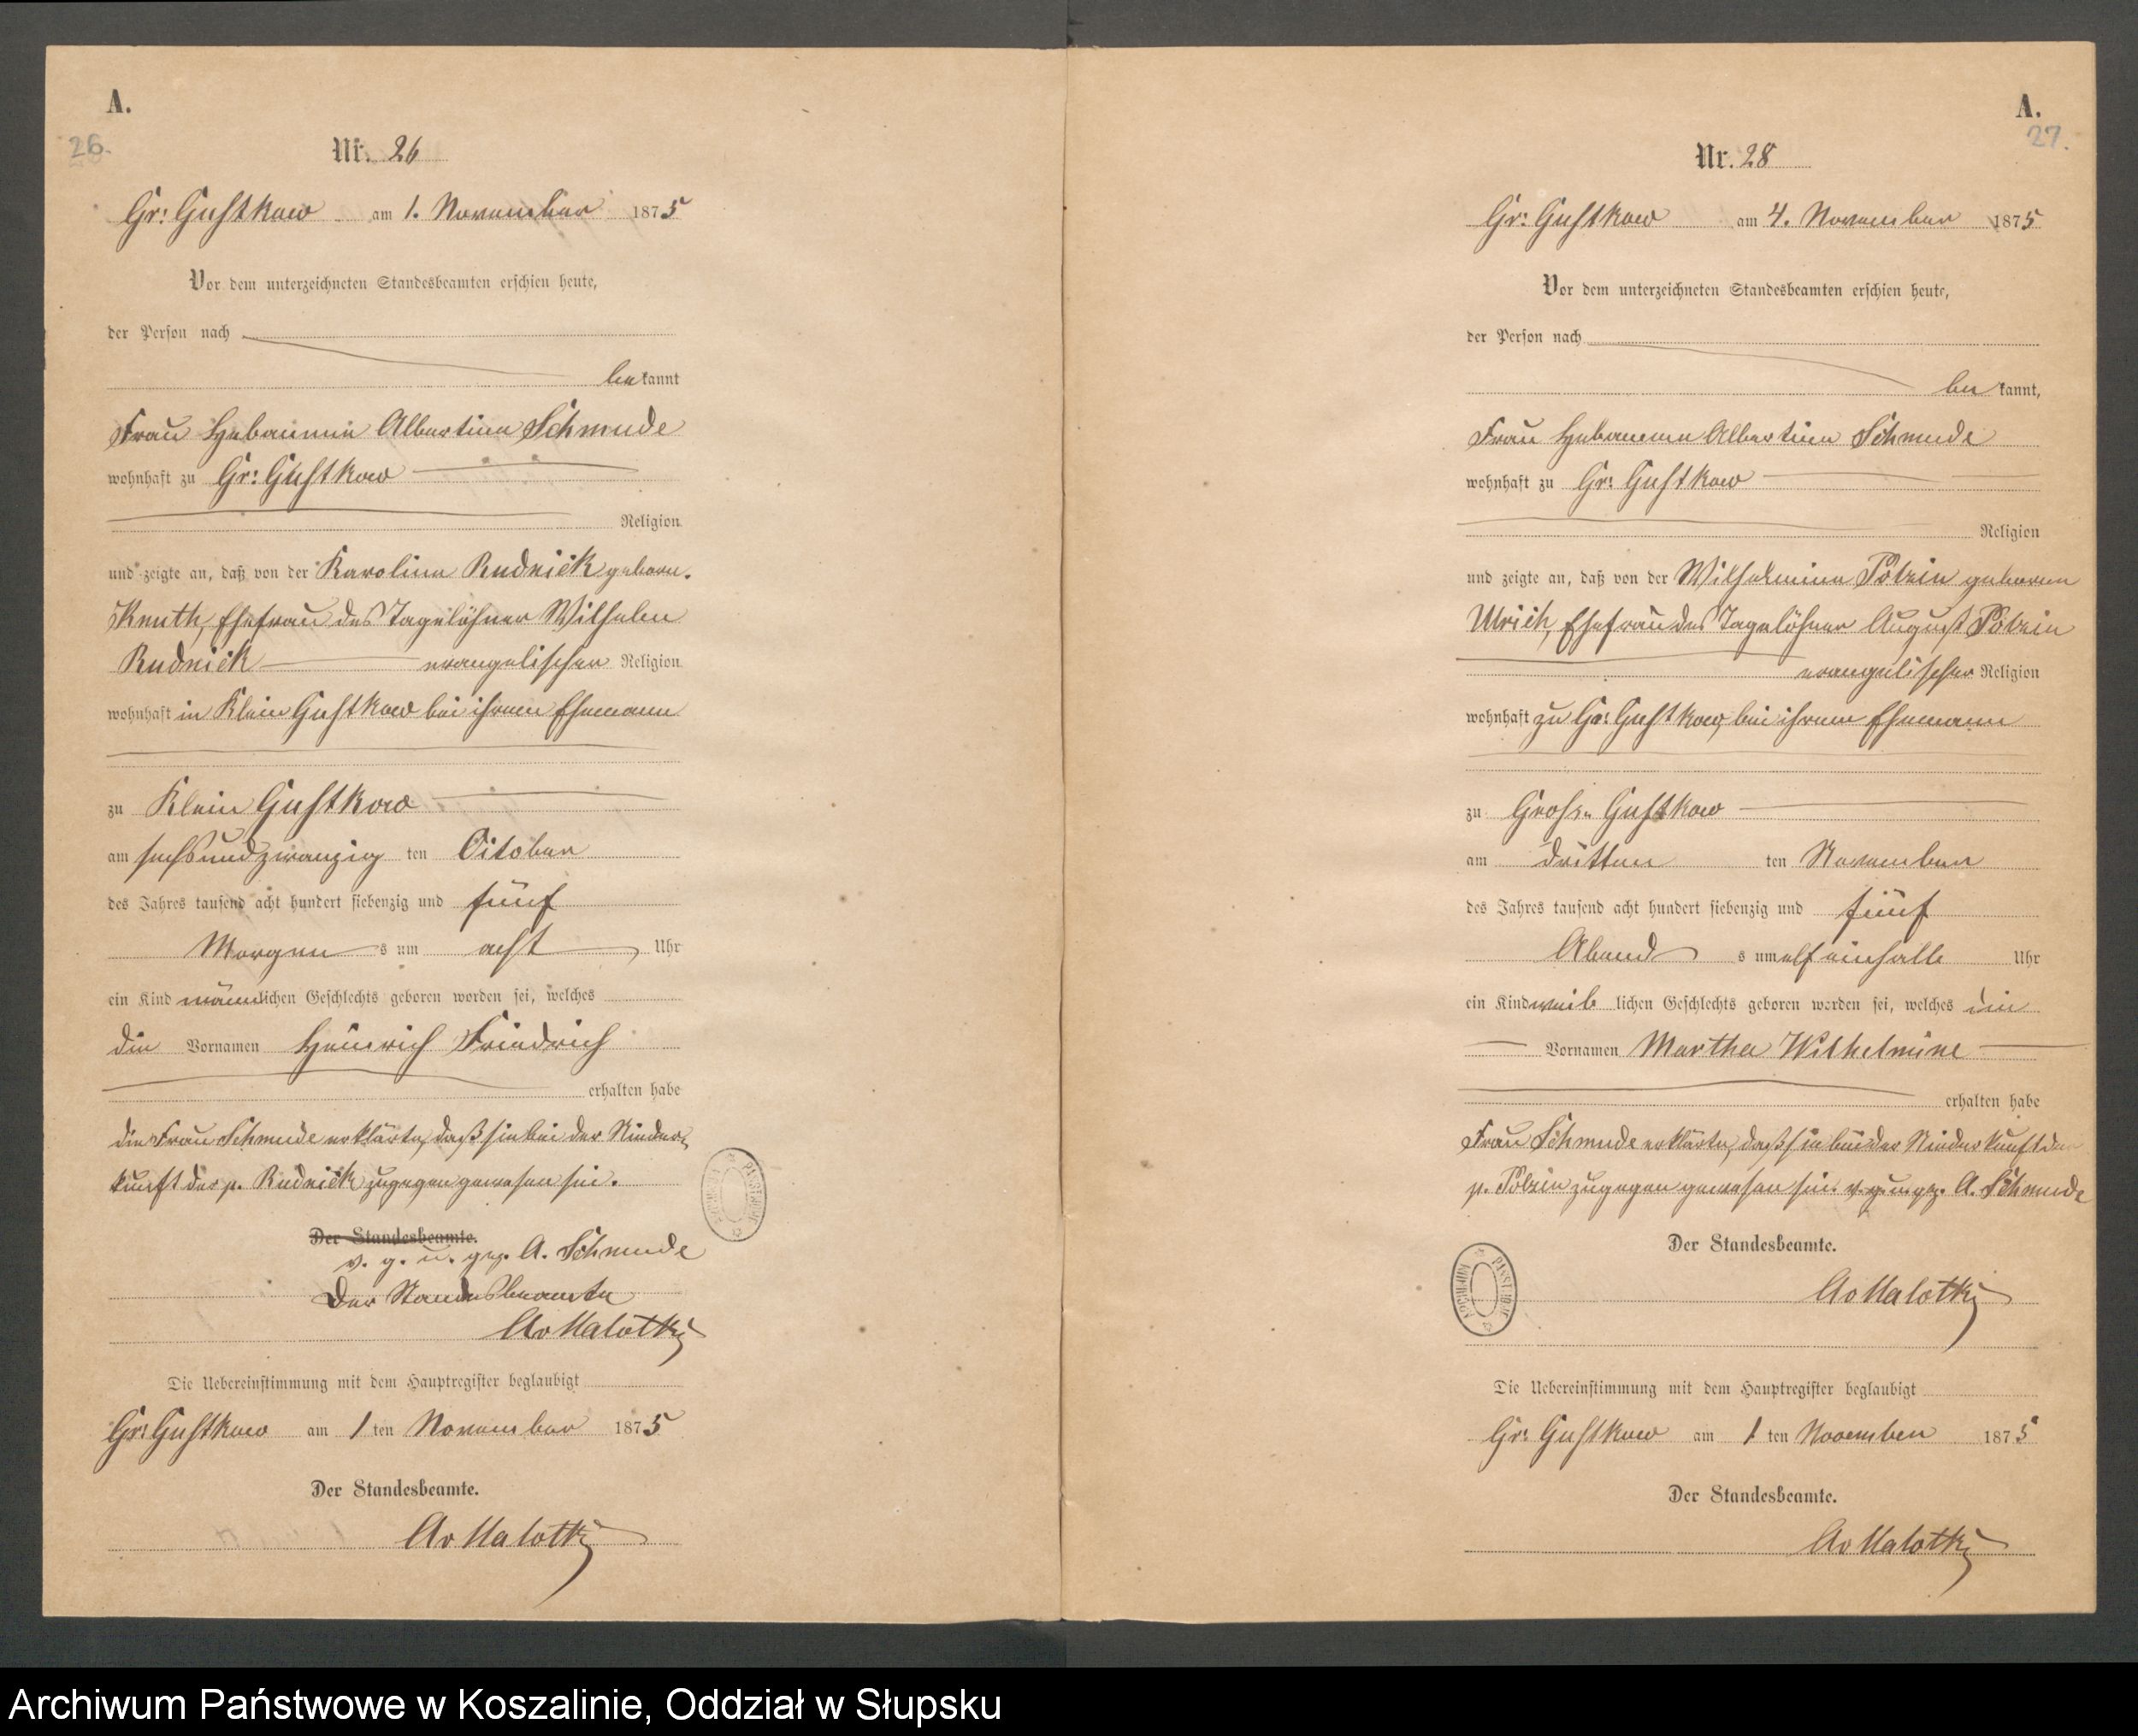 A.
26.
Nr. 26
Gr: Gustkow am 1. November 1875
Vor dem unterzeichneten Standesbeamten erschien heute,
der Person nach
bekannt
Frau Hebamme Albertine Schmude
wohnhaft zu Gr: Gustkow
Religion
und zeigte an, daß von der Karoline Rudnick geborn.
Knuth, Ehefrau des Tagelöhner Wilhelm
Rudnick evangelischer Religion
wohnhaft in Klein Gustkow bei ihrem Ehemann
zu Klein Gustkow
am sechsundzwanzig ten October
des Jahres tausend acht hundert siebenzig und fünf
Morgens um acht Uhr
ein Kind männlichen Geschlechts geboren worden sei, welches
die Vornamen Heinrich Friedrich
erhalten habe
die Frau Schmude erklärte, daß sie bei der Nieder-
kunft der p. Rudnick zugegen gewesen sei.
Der Standesbeamte.
v. g. u. gez. A. Schmude
Der Standesbeamte
AvMalottki
Die Uebereinstimmung mit dem Hauptregister beglaubigt
Gr: Gustkow am 1 ten November 1875
Der Standesbeamte.
AvMalottki
A.
27.
Nr. 28
Gr: Gustkow am 4. November 1875
Vor dem unterzeichneten Standesbeamten erschien heute,
der Person nach
bekannt,
Frau Hebamme Albertine Schmude
wohnhaft zu Gr: Gustkow
Religion
und zeigte an, daß von der Wilhelmine Polzin geborene
Ulrich, Ehefrau des Tagelöhner August Polzin
evangelischer Religion
wohnhaft zu Gr: Gustkow, bei ihrem Ehemann
zu Gross Gustkow
am dritten ten November
des Jahres tausend acht hundert siebenzig und fünf
Abends um elf einhalb Uhr
ein Kind weiblichen Geschlechts geboren worden sei, welches die
Vornamen Martha Wilhelmine
erhalten habe
Frau Schmude erklärte, daß sie bei der Niederkunft der
p. Polzin zugegen gewesen sei. v. g. u. gez. A. Schmude
Der Standesbeamte.
AvMalottki
Die Uebereinstimmung mit dem Hauptregister beglaubigt
Gr: Gustkow am 1 ten November 1875
Der Standesbeamte.
AvMalottki
Archiwum Państwowe w Koszalinie, Oddział w Słupsku